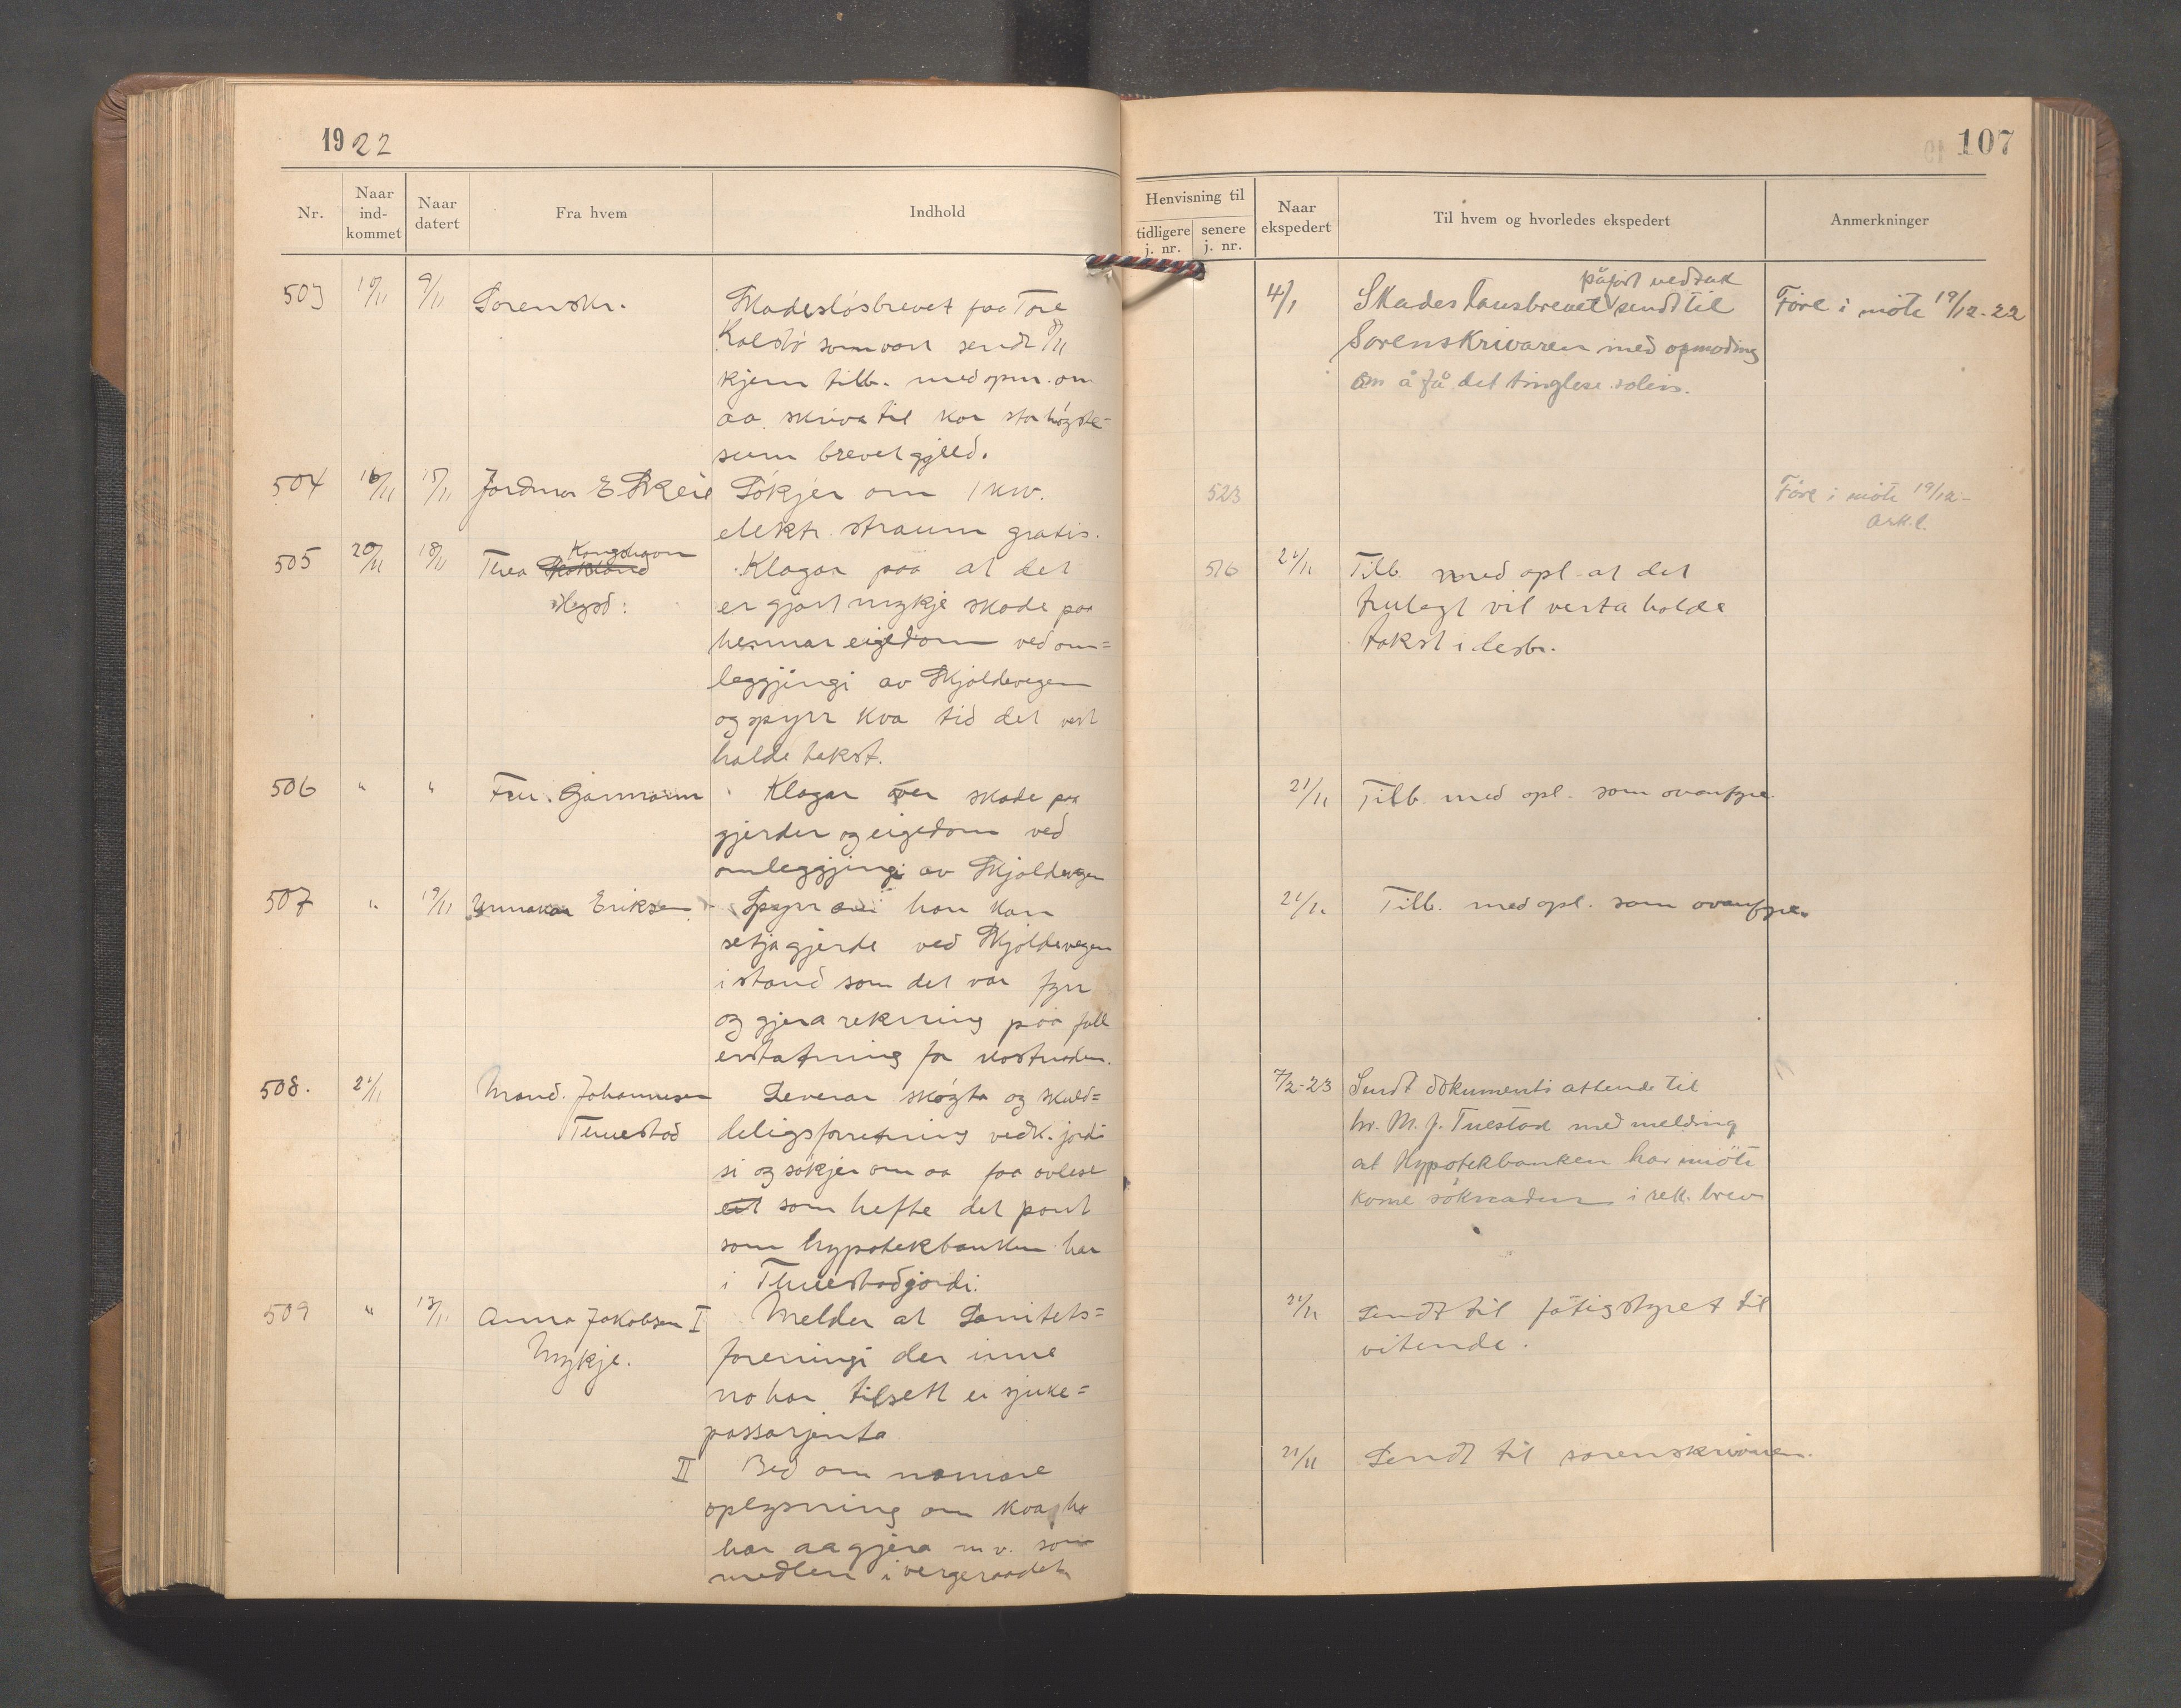 1922
Nr.
Naar ind-kommet
Naar datert
Fra hvem
Indhold
503 10/11 9/11 Sorenskr. Skadesløsbrevet fra Tore
Kalstø som vart sendt 8/11
kjem tilb. med opm. om
aa skriva til kor stor høgste-
sum brevet gjeld.
504 16/11 15/11 Jordmor E Skeie Søkjer om 1 kw.
elekt. straum gratis.
505 20/11 18/11 Thea Skokland Kongshavn Klagar paa at det
Høgsd: er gjort mykje skade paa
hennar eigedom ved om=
leggjingi av Skjoldevegen
og spyrr kva tid det vert
halde takst.
506 " " Fru. Garmann Klagar over skade paa
gjerder og eigedom ved
omleggjingi av Skjoldevegen
507 " 19/11 Eriksen Spyrr om han kan
setja gjerde ved Skjoldevegen
i stand som det var fyrr
og gjera rekning paa full
erstatning for kostnaden.
508. 21/11 Mand. Johannesen Leverar skøyte og skuld=
Tuestad delingsforretning vedk. jordi
si og søkjer om aa faa avlese
som hefte det pant
som hypotekbanken har
i Tuestadjordi.
509 " 13/11 Anna Jakobsen I Melder at Sanitets=
Mykje. foreningi der inne
no har tilsett ei sjuke=
passarjenta
II Bed om nærmare
oplysning om kva ho
har aa gjera m.v. som
medlem i vergeraadet
107
Henvisning til
tidligere j. nr.
senere j. nr.
Naar ekspedert
Til hvem og hvorledes ekspedert
Anmerkninger
påført vedtak
4/1 Skadeslausbrevet sendt til Före i möte 19/12-22
Sorenskrivaren med opmoding
om å få det tinglese soleis.
523 Före i möte 19/12-
ark.l.
516 21/11 Tilb. med opl. at det
trulegt vil verta halde
takst i desbr.
21/11 Tilb. med opl. som ovanfyre.
21/11 Tilb. med opl. som ovanfyre.
7/2-23 Sendt dokumenti attende til
hr. M. J. Tuestad med melding
at Hypotekbanken har möte
kome söknaden i rek. brev
21/11 Sendt til fatigstyret til
vitende.
21/11 Sendt til sorenskrivaren.